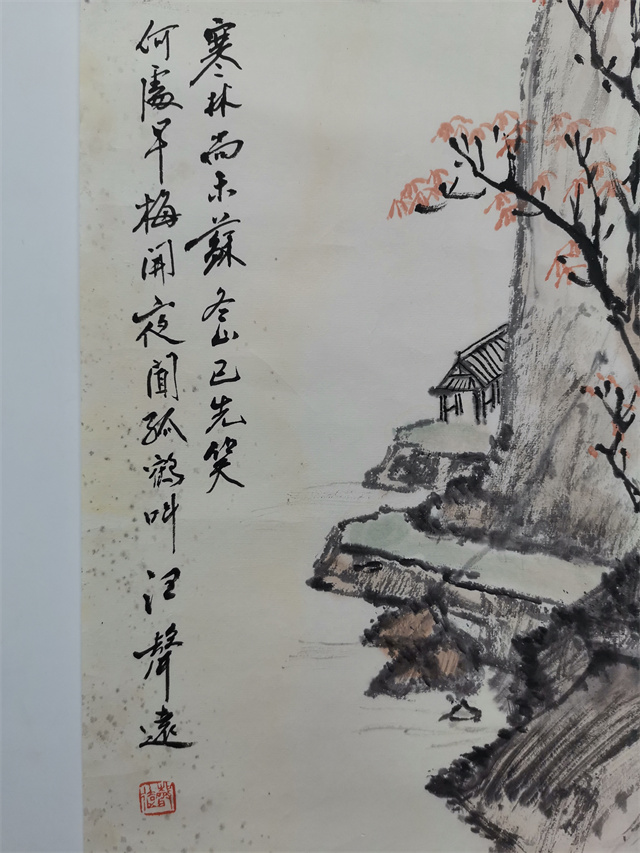 寒林尚未蘇冬山已先笑
何處早梅開夜聞孤鶴叫汪聲遠
聲遠